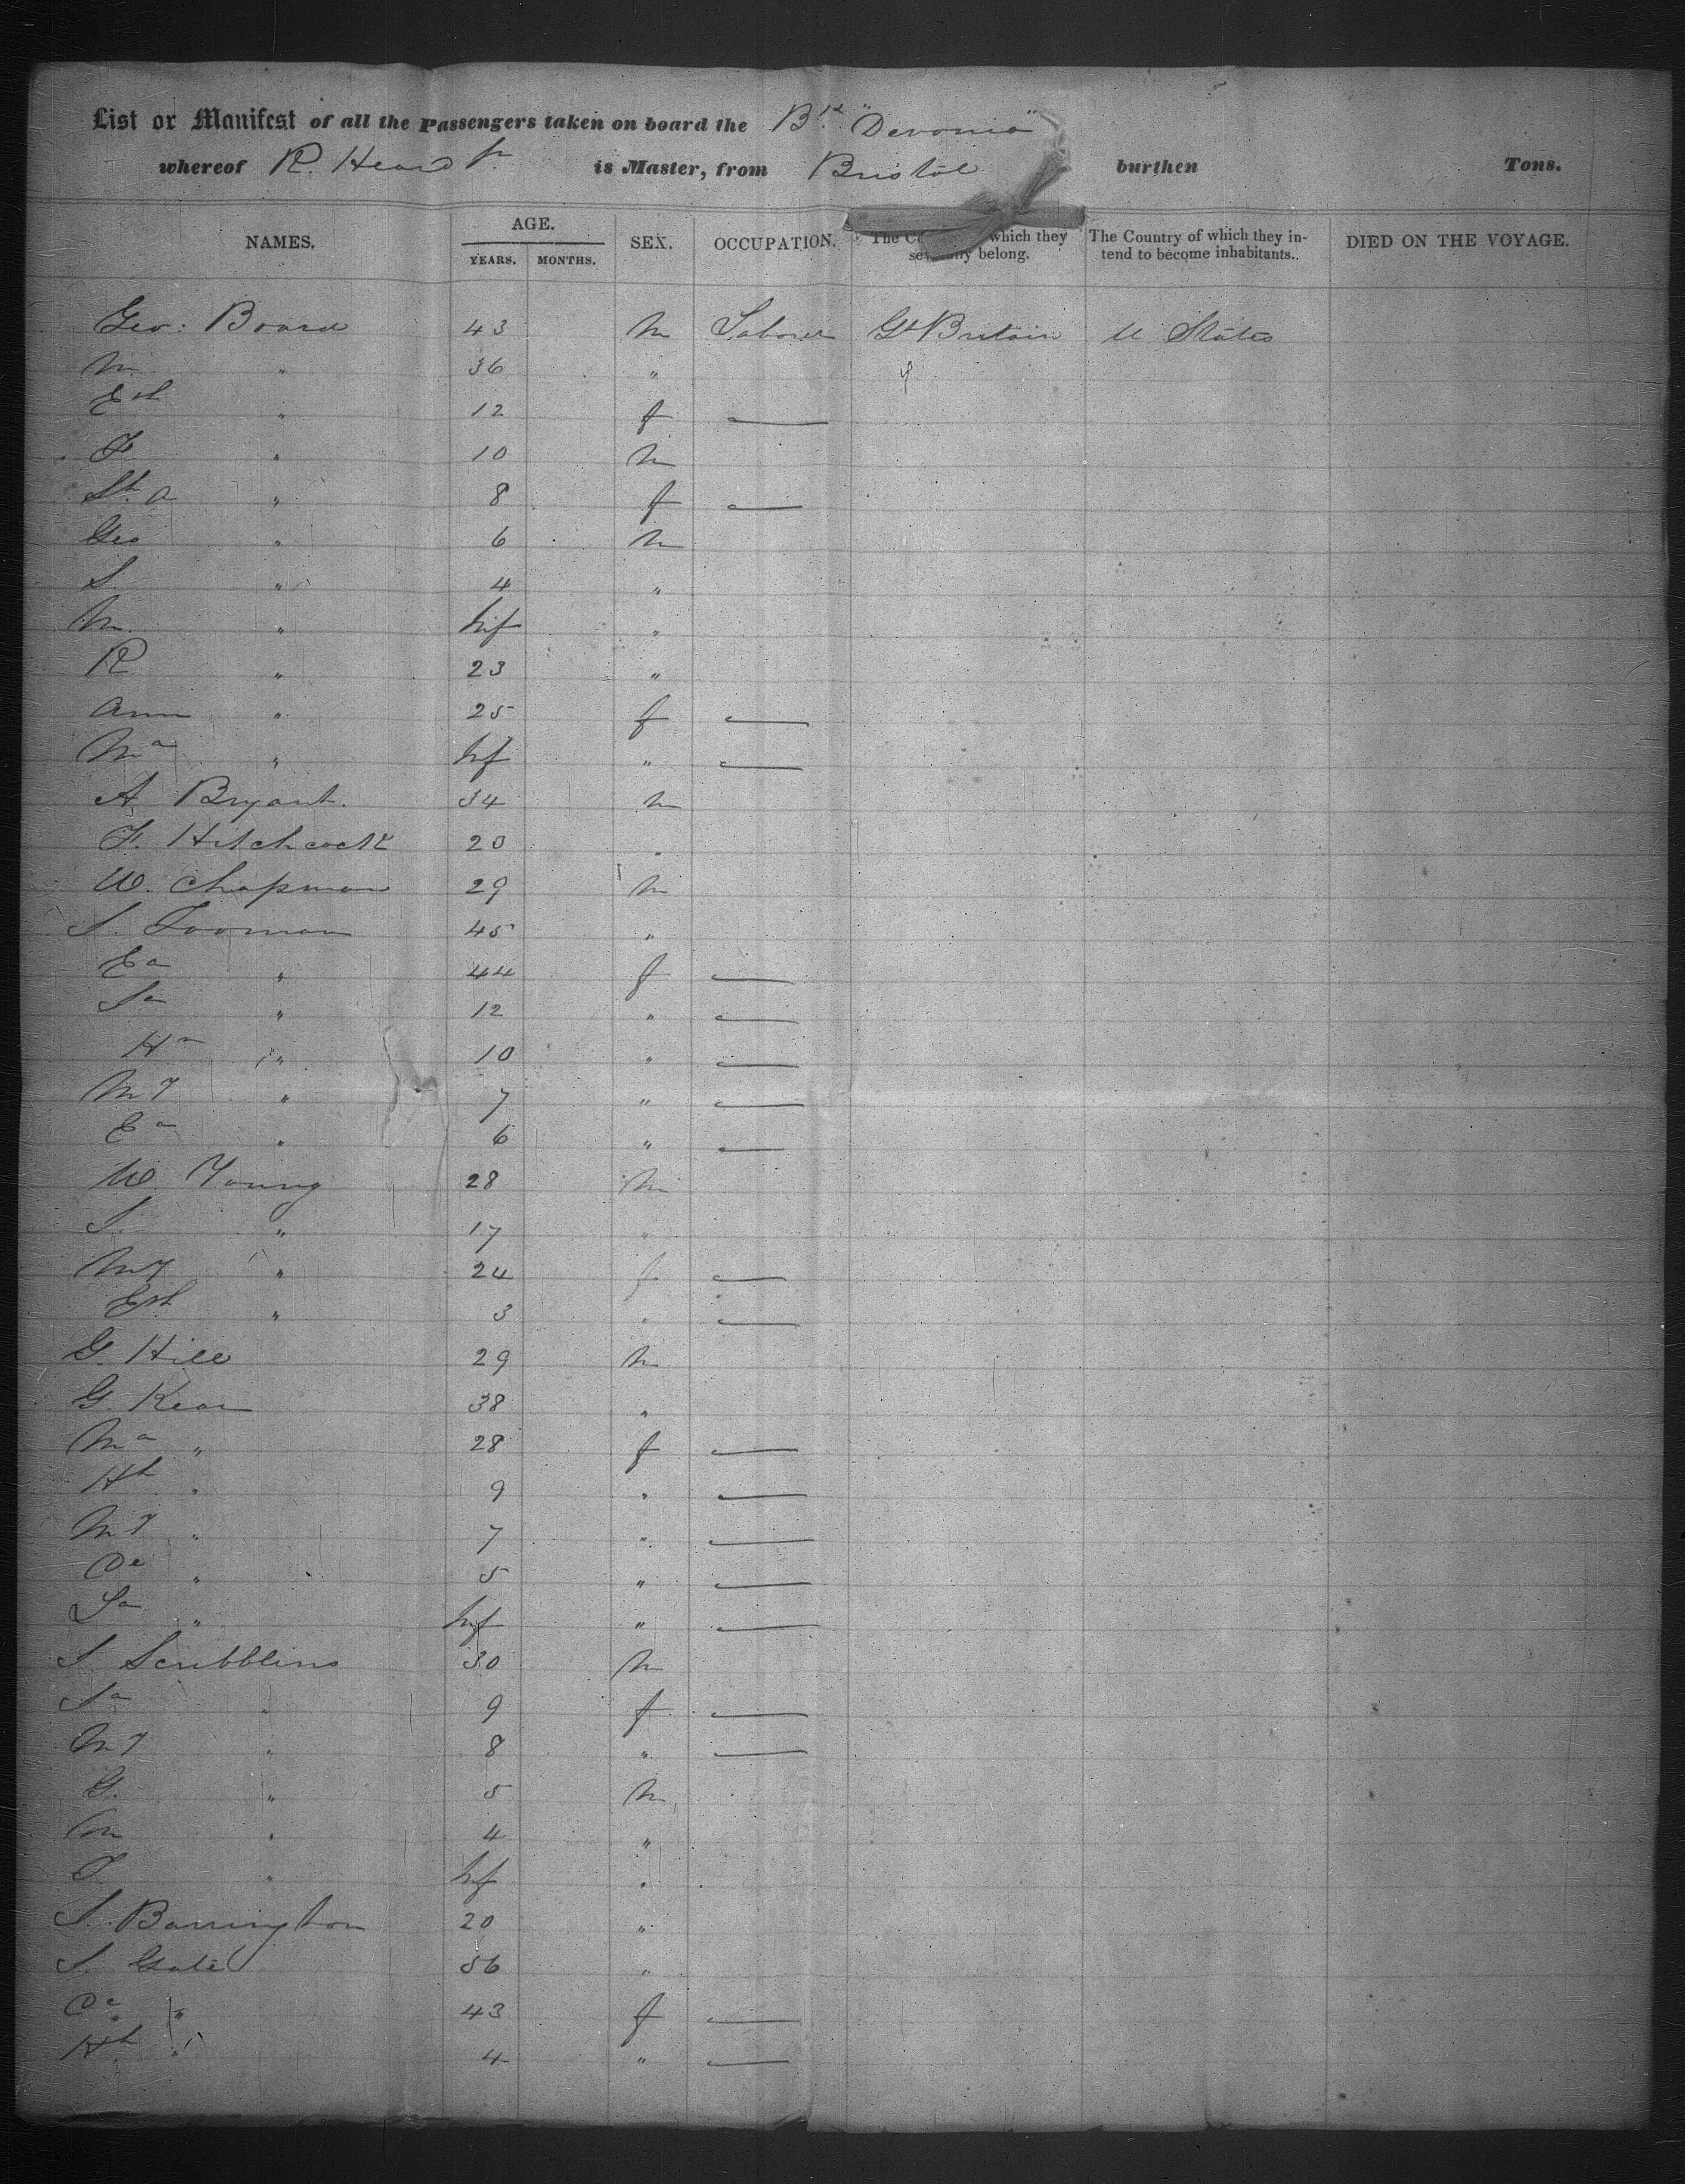 List or Manifest of all the Passengers taken on board the Bk "Devonia"
whereof R. Heard Jr is Master, from Bristol burthen Tons.
NAMES. AGE. YEARS. MONTHS. SEX. OCCUPATION. The which they belong. The Country of which they intend to become inhabitants. DIED ON THE VOYAGE.
Geo: Board 43 m Laborer Gt Britain U States
M " 36 "
Eth " 12 f —
F " 10 m
" 8 f —
Geo " 6 m
S. " 4 "
M. " Inf "
R " 23 "
Ann " 25 f —
Ma " Inf " —
A Bryant. 34 m
F. Hitchcock 23 "
W. Chapman 29 m
S. Tooman 45 "
Ea " 44 f —
Sa " 12 " —
Ha " 10 " —
My " 7 " —
Ea " 6 " —
W Young 28 m
S. " 17 "
My " 24 f —
Eth " 3 " —
G. Hill 29 m
G. Kear 38 "
Ma " 28 f —
Hh " 9 " —
My " 7 " —
Ce " 5 " —
Sa " Inf " —
S Scribblins 30 m
Sa " 9 f —
My " 8 " —
G. " 5 m
M " 4 "
T. " Inf "
S. Barrington 20 "
S. Gale 56 "
Ce " 43 f —
Hh " 4 " —